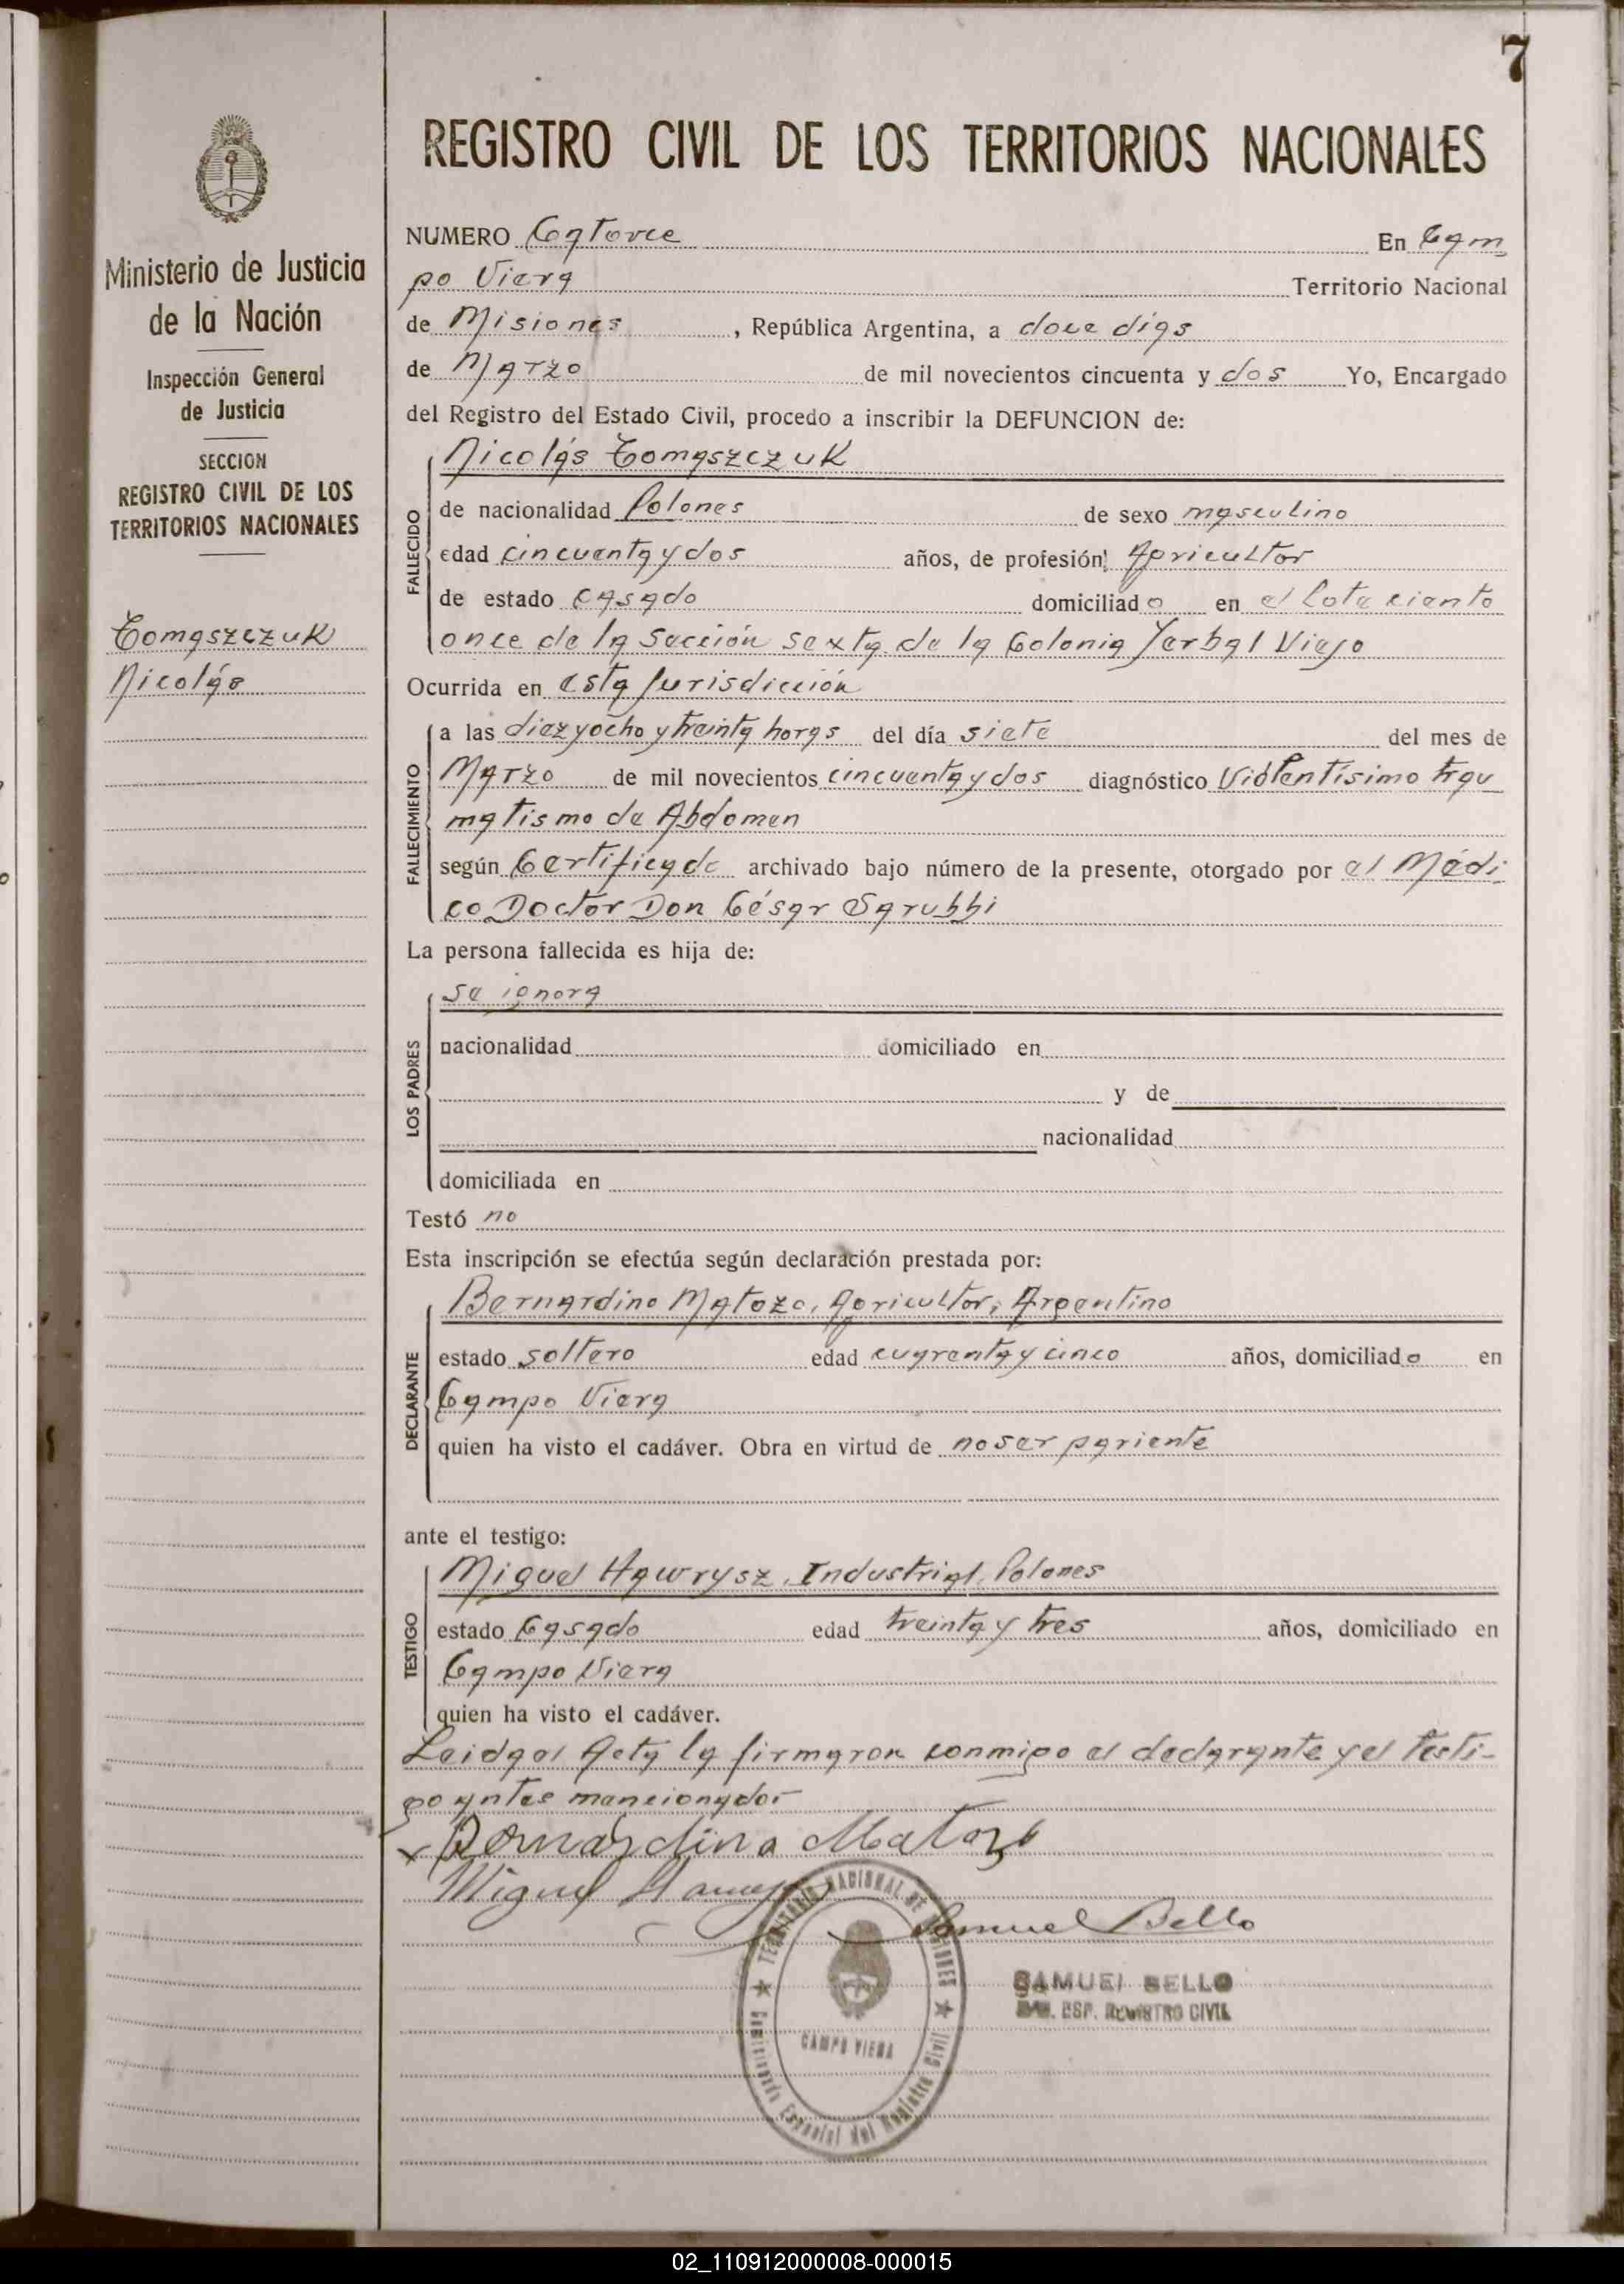 7
REGISTRO CIVIL DE LOS TERRITORIOS NACIONALES
Ministerio de Justicia
de la Nación
Inspección General
de Justicia
SECCION
REGISTRO CIVIL DE LOS
TERRITORIOS NACIONALES
Tomaszczuk
Nicolás
NUMERO Catorce En Cam
po Viera Territorio Nacional
de Misiones, República Argentina, a doce días
de Marzo de mil novecientos cincuenta y dos Yo, Encargado
del Registro del Estado Civil, procedo a inscribir la DEFUNCION de:
FALLECIDO
Nicolás Tomaszczuk
de nacionalidad Polones de sexo masculino
edad cincuenta y dos años, de profesión Agricultor
de estado casado domiciliado en el Lote ciento
once de la Sección sexta de la Colonia Yerbal Viejo
Ocurrida en esta Jurisdicción
FALLECIMIENTO
a las diez y ocho y treinta horas del día siete del mes de
Marzo de mil novecientos cincuenta y dos diagnóstico Violentísimo trau
matismo de Abdomen
según Certificado archivado bajo número de la presente, otorgado por el Médi
co Doctor Don César Sarubbi
La persona fallecida es hija de:
LOS PADRES
se ignora
nacionalidad domiciliado en
y de
nacionalidad
domiciliada en
Testó no
Esta inscripción se efectúa según declaración prestada por:
DECLARANTE
Bernardino Matozo, Agricultor, Argentino
estado soltero edad cuarenta y cinco años, domiciliado en
Campo Viera
quien ha visto el cadáver. Obra en virtud de no ser pariente
ante el testigo:
TESTIGO
Miguel Hawrysz, Industrial, Polones
estado Casado edad treinta y tres años, domiciliado en
Campo Viera
quien ha visto el cadáver.
Leida el Acta la firmaron conmigo el declarante y el testi-
go antes mencionados-
x Bernardino Matozo
Miguel
Samuel Bello
TERRITORIO NACIONAL DE MISIONES
CAMPO VIERA
Comisionado Especial del Registro Civil
SAMUEL BELLO
ESP. REGISTRO CIVIL
02_110912000008-000015